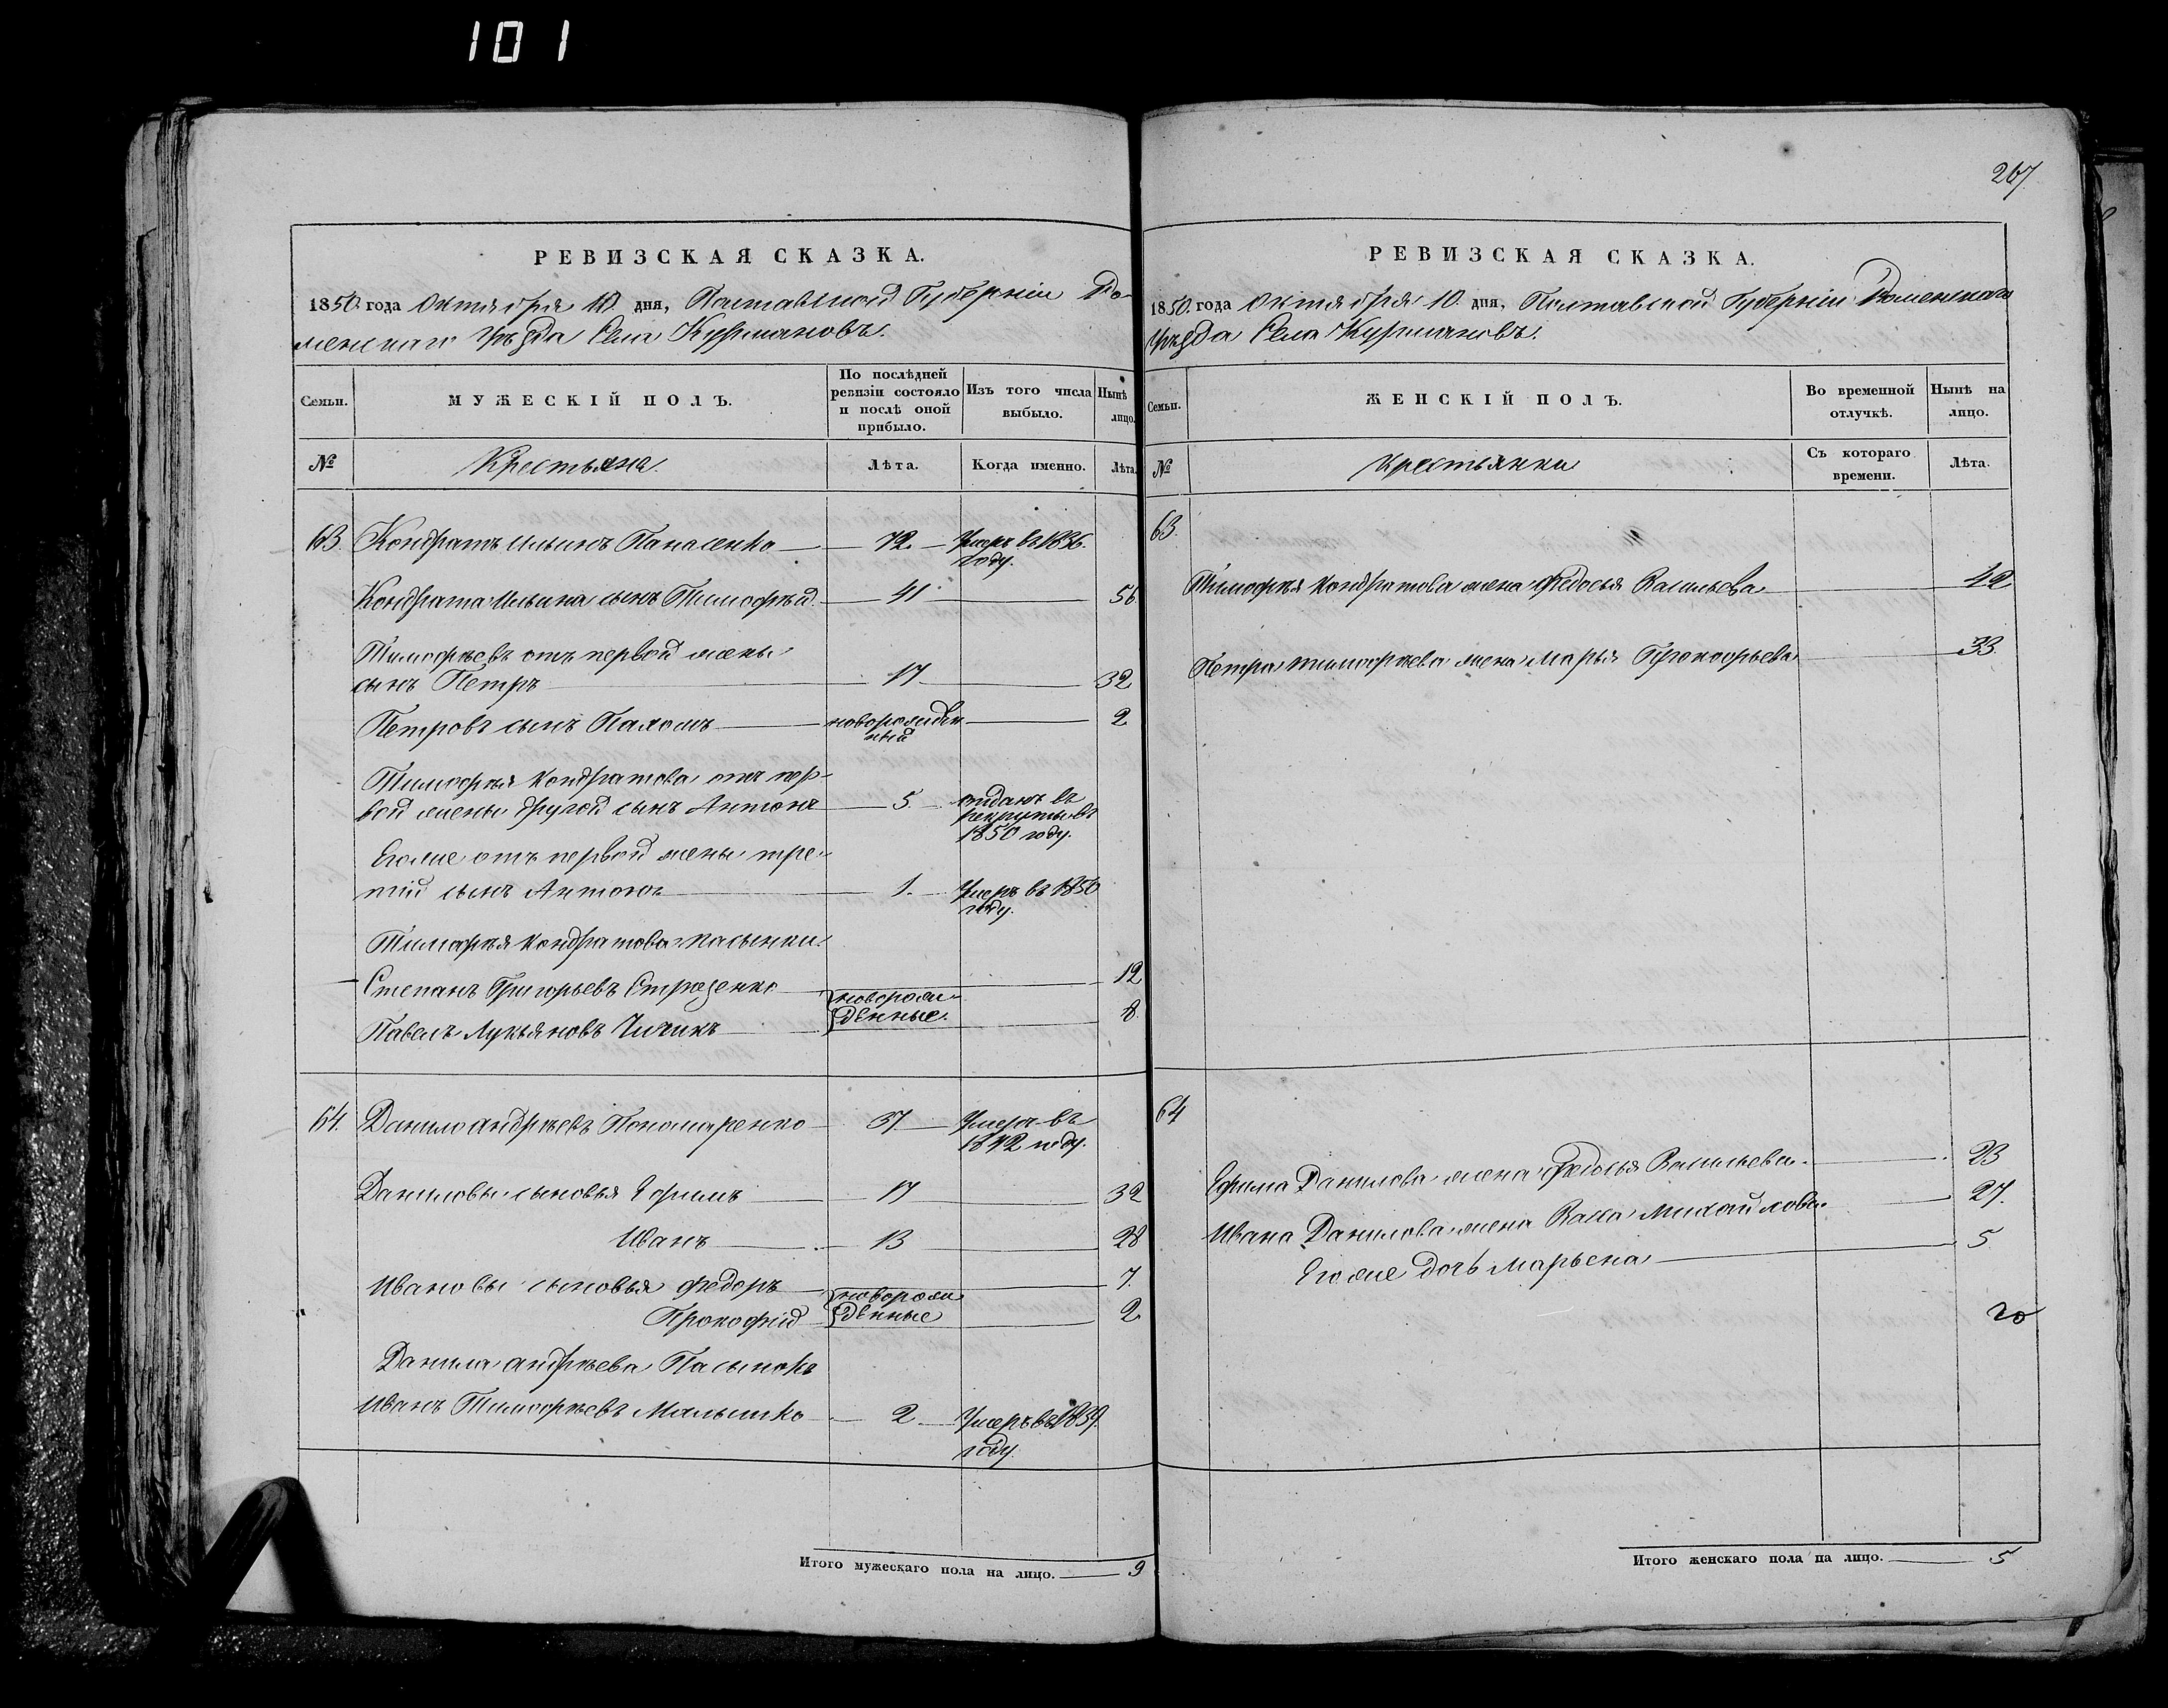 101
267
РЕВИЗСКАЯ СКАЗКА.
1850 года Октября 10 дня, Полтавской Губерніи Ро-
менскаго Уѣзда Села Курмановъ.
Семьи.
МУЖЕСКІЙ ПОЛЪ.
По послѣдней ревизіи состояло и послѣ оной прибыло.
Изъ того числа выбыло.
Нынѣ лицо.
№
Крестьяне
Лѣта.
Когда именно.
Лѣта.
63. Кондратъ Ильинъ Панасенко 72. Умеръ въ 1836.
году.
Кондрата Ильина сынъ Тимофѣй. 41 56
Тимофѣевъ отъ первой жены
сынъ Петръ 17 32
Петровъ сынъ Пахомъ новорожден 2
ный
Тимофѣя Кондратова отъ пер-
вой жены другой сынъ Антонъ 5. отданъ въ
рекруты въ
1850 году.
Егоже отъ первой жены тре-
тій сынъ Антонъ 1. Умеръ въ 1850
году.
Тимофѣя Кондратова пасынки
Степанъ Григорьевъ 12
новорож-
денные.
Павелъ Лукьяновъ Чичикъ 8.
64. Данило Андрѣевъ Пономаренко 37. Умеръ въ
1842 году.
Даниловы сыновья Ефимъ 17 32
Иванъ 13 28
Ивановы сыновья Федоръ 7.
новорож
денные
Прокофій 2
Данила Андрѣева Пасынокъ
Иванъ Тимофѣевъ Малышко 2 Умеръ въ 1839.
году.
Итого мужескаго пола на лицо. 9
РЕВИЗСКАЯ СКАЗКА.
1850. года Октября 10. дня, Полтавской Губерніи Роменскаго
Уѣзда Села Курмановъ.
Семьи.
ЖЕНСКІЙ ПОЛЪ.
Во временной отлучкѣ.
Нынѣ на лицо.
№
Крестьянки
Съ котораго времени.
Лѣта.
63.
Тимофѣя Кондратова жена Федосья Васильева 42
Петра Тимофѣева жена Марья Прокофьева 33
64
Ефима Данилова жена Федосья Васильева 23
Ивана Данилова жена Васса Михайлова 27.
Егоже дочь Марьена 5
Итого женскаго пола на лицо. 5